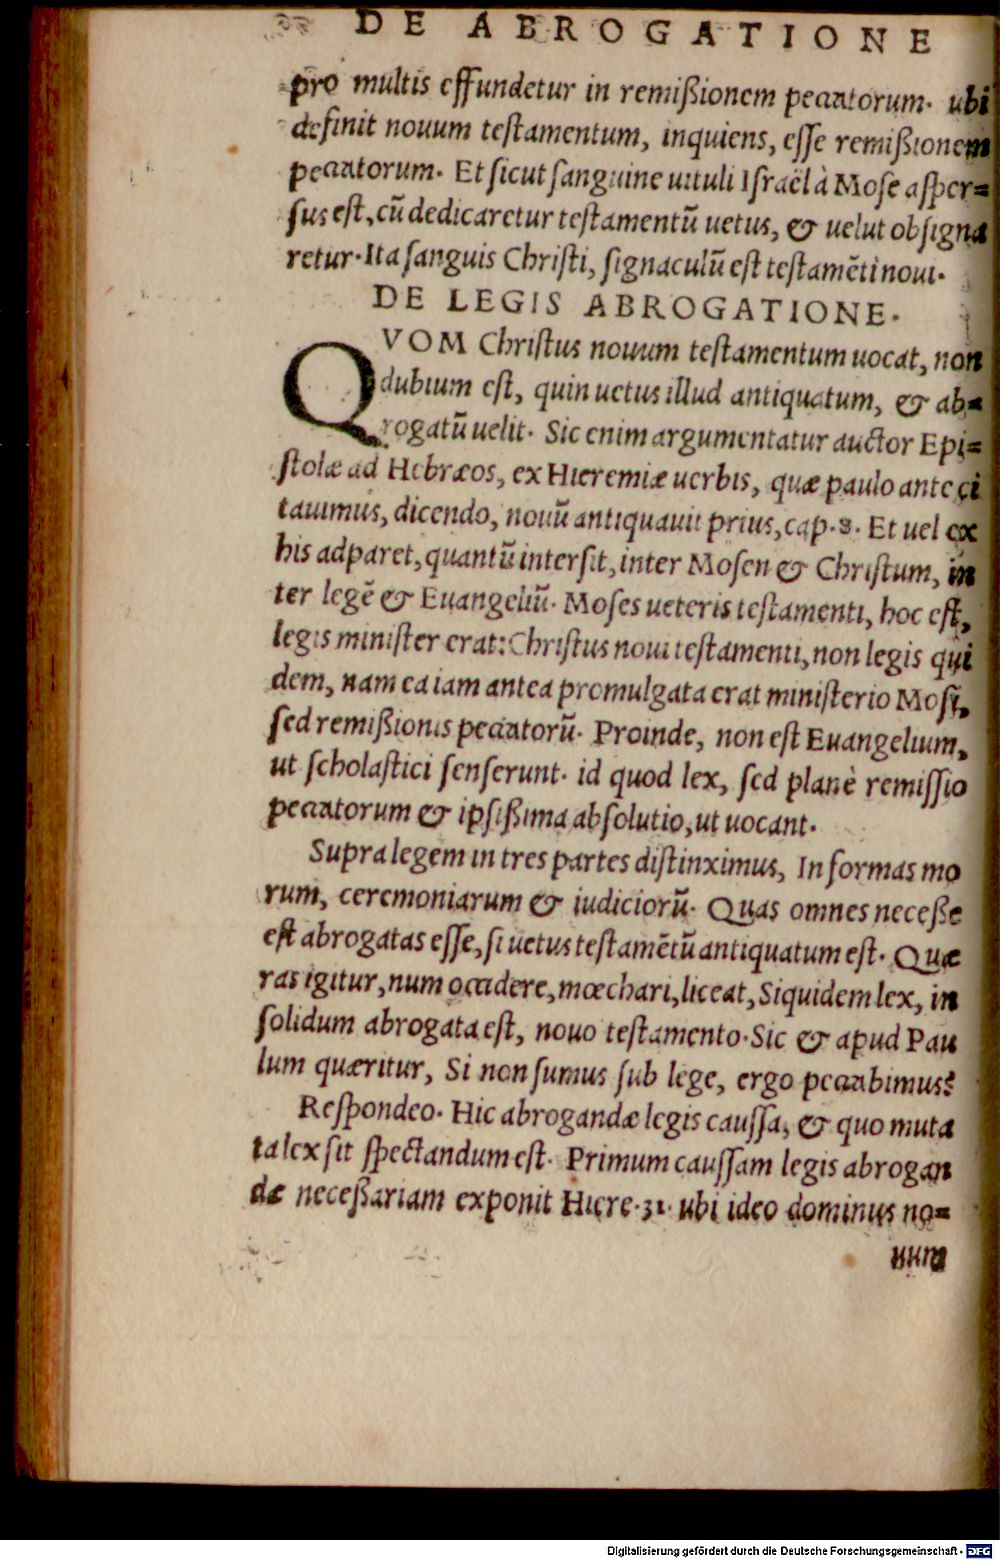 DE ABROGATIONE
pro multis effundetur in remißionem peccatorum. ubi
definit nouum teſtamentum, inquiens, eſſe remißionem
peccatorum. Et ſicut ſanguine uituli Iſraël à Moſe aſper=
ſus eſt, cũ dedicaretur teſtamentũ uetus, & uelut obſigna
retur. Ita ſanguis Chriſti, ſignaculũ eſt teſtamẽti noui.
DE LEGIS ABROGATIONE.
QVOM Chriſtus nouum teſtamentum uocat, non
dubium eſt, quin uetus illud antiquatum, & ab=
rogatũ uelit. Sic enim argumentatur auctor Epi=
ſtolæ ad Hebræos, ex Hieremiæ uerbis, quæ paulo ante ci
tauimus, dicendo, nouũ antiquauit prius, cap. 8. Et uel ex
his adparet, quantũ interſit, inter Moſen & Chriſtum, in
ter legẽ & Euangeliũ. Moſes ueteris teſtamenti, hoc eſt,
legis miniſter erat: Chriſtus noui teſtamenti, non legis qui
dem, nam ea iam antea promulgata erat miniſterio Moſi,
ſed remißionis peccatorũ. Proinde, non eſt Euangelium,
ut ſcholaſtici ſenſerunt. id quod lex, ſed planè remiſſio
peccatorum & ipſißima abſolutio, ut uocant.
Supra legem in tres partes diſtinximus, In formas mo
rum, ceremoniarum & iudiciorũ. Quas omnes neceße
eſt abrogatas eſſe, ſi uetus teſtamẽtũ antiquatum eſt. Quæ
ras igitur, num occidere, mœchari, liceat, Siquidem lex, in
ſolidum abrogata eſt, nouo teſtamento. Sic & apud Pau
lum quæritur, Si non ſumus ſub lege, ergo peccabimus?
Reſpondeo. Hic abrogandæ legis cauſſa, & quo muta
ta lex ſit ſpectandum eſt. Primum cauſſam legis abrogan
dæ neceßariam exponit Hiere. 31. ubi ideo dominus no=
uum
Digitalisierung gefördert durch die Deutsche Forschungsgemeinschaft - DFG